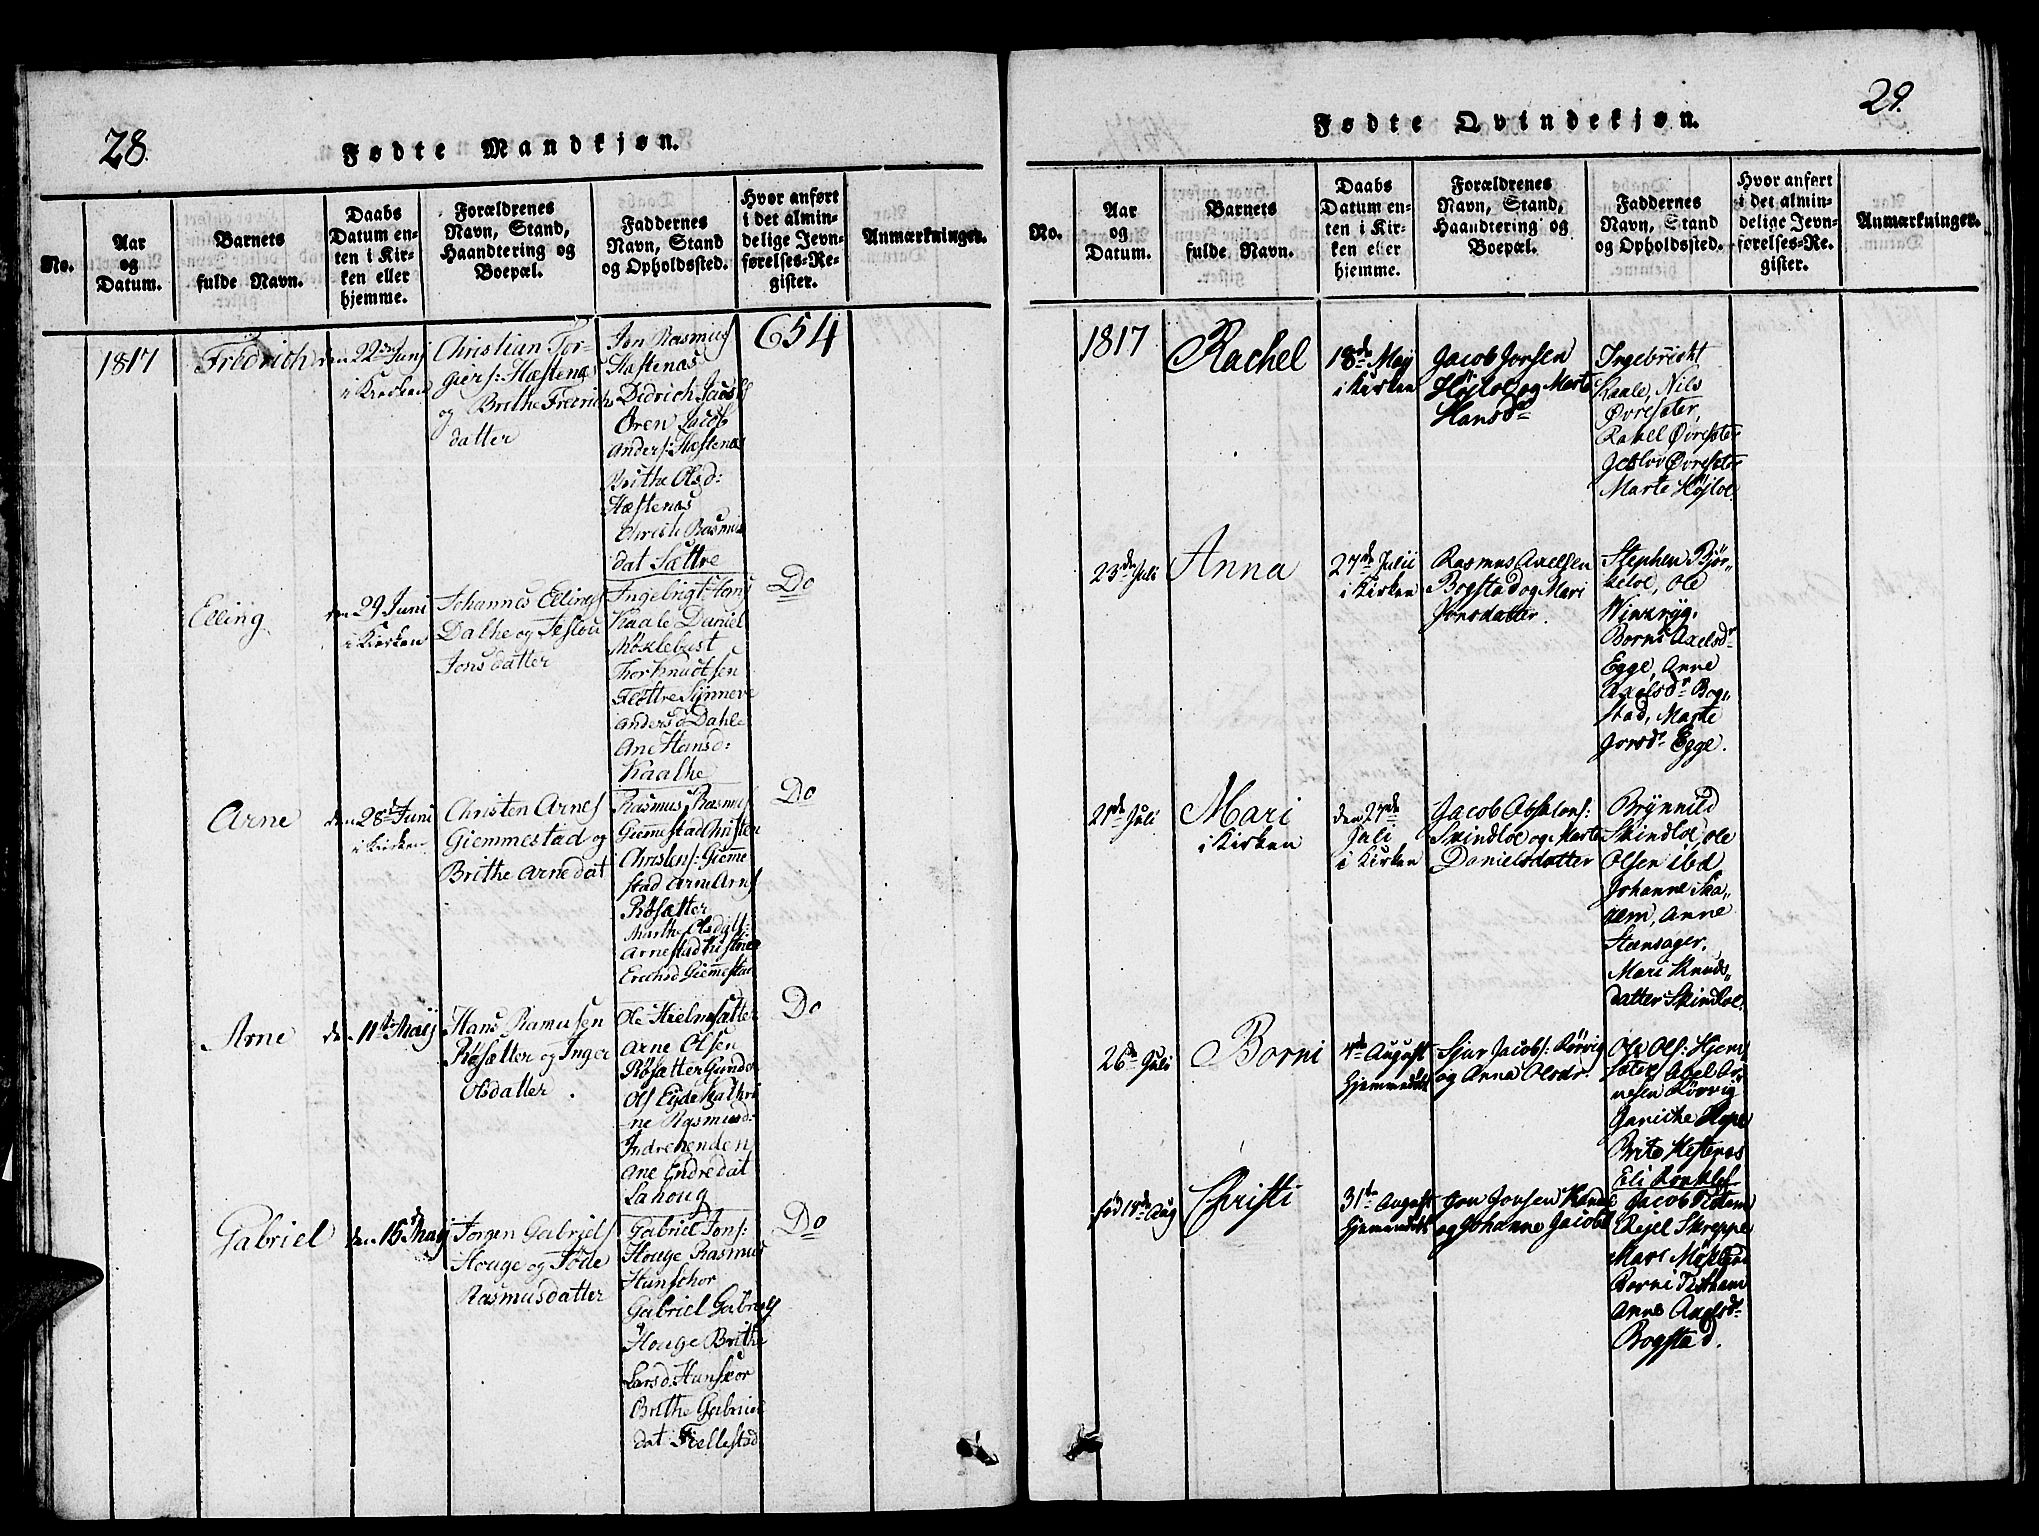 28.
Fødte Mandkjøn.
No.
Aar
og
Datum.
Barnets
fulde Navn.
Daabs
Datum en-
ten i Kir-
ken eller
hjemme.
Forældrenes
Navn, Stand,
Haandtering og
Boepæl.
Faddernes
Navn, Stand
og Opholdssted.
Hvor anført
i det almin-
delige Jevn-
førelses-Re-
gister.
Anmærkninger.
1817
Fredrich
den 22de Junj
i Kirken
Christian Tor-
giers: Hæstenæs
og Brithe Fredrichs
datter
Jon Rasmus
Hæstenæs
Didrich
Øren Jacob
Anders: Hæstenæs
Brithe Olsd:
Hæstenæs
Christi Rasmus
dat Sættre
654
Elling
den 29 Juni
i Kirken
Johannes Ellings
Dalhe og Jeslou
Jonsdatter
Ingebrigt Hans
Kaale Daniel
Møklebust
Thor Knudtsen
Fløttre Synneve
Andersd Dahle
Ane Hansd:
Kaalhe
Do
Arne
den 28de Juni
i Kirken
Christen Arnes
Giemmestad og
Brithe Arnedat
Rasmus Rasmus
Giemestad Christen
Christens: Giemme
stad Arne Arnes
Røsætter
Marthe Olsdatt:
Arnestad Kistine
Erichsd Giemestad
Do
Arne
den 11te Maij
Hans Ramusen
Røsætter og Inger
Olsdatter.
Ole Hielmesætter
Arne Olsen
Røsætter Gunder
Ols Eyde Kathri
-ne Rasmusd:
Indrehenden
Ane Endredat
Lahoug
Do
Gabriel
den 15de Maij
Jørgen Gabriels
Houge og Jøde
Rasmusdatter
Gabriel Jons:
Houge Rasmus
Hunschor
Gabriel Gabriels
Houge Brithe
Larsd. Hunskor
Brithe Gabriel
dat Fiellestad
Do
29.
Fødte Qvindekjøn.
No.
Aar
og
Datum.
Barnets
fulde Navn.
Daabs
Datum en-
ten i Kir-
ken eller
hjemme.
Forældrenes
Navn, Stand,
Haandtering og
Boepæl.
Faddernes
Navn, Stand
og Opholdssted.
Hvor anført
i det almin-
delige Jevn-
førelses-Re-
gister.
Anmærkninger.
1817
Rachel
18de Maij
i Kirken
Jacob Jonsen
Højloe og Marte
Hansdr
Ingebricht
Kaale, Nils
Øvresæter,
Rakel Øvresæter
Jeslov Øvresæter
Marte Højloe
23de Juli
Anna
27de Julii
i Kirken
Rasmus Axelsen
Bogstad og Mari
Jonsdatter.
Stephen Bjør-
keloe, Ole
Winsryg,
Borni Axelsdr
Egge, Anne
Axelsdr Bog,
stad, Marte
Jonsdr Egge.
21de Juli
Mari
i Kirken
den 27de
Juli
i Kirken
Jacob Absalons:
Skindloe og Marte
Danielsdatter
Brynnild
Skindloe, Ole
Olsen ibd
Johanne Ska,
rem, Anne
Steensager,
Mari Knuds,
datter Skindloe.
26de Juli
Borni
4de August
Hjemmedøbt
Sjur Jacobs: Rørvig
og Anna Olsdr.
Ole Ols: Hjem
sæter, Abel Ar-
nesen Rørvig
Janiche Kope
Brite Hestenes
Eli
fød 18de Aug
Christi
31te August
Hjemmedøbt
Jon Jonsen
og Johanne Jacobs
Jacob Tistam
Rejel Skreppe
Mari
Borni Tistham
Anne Axelsdr
Bogstad.